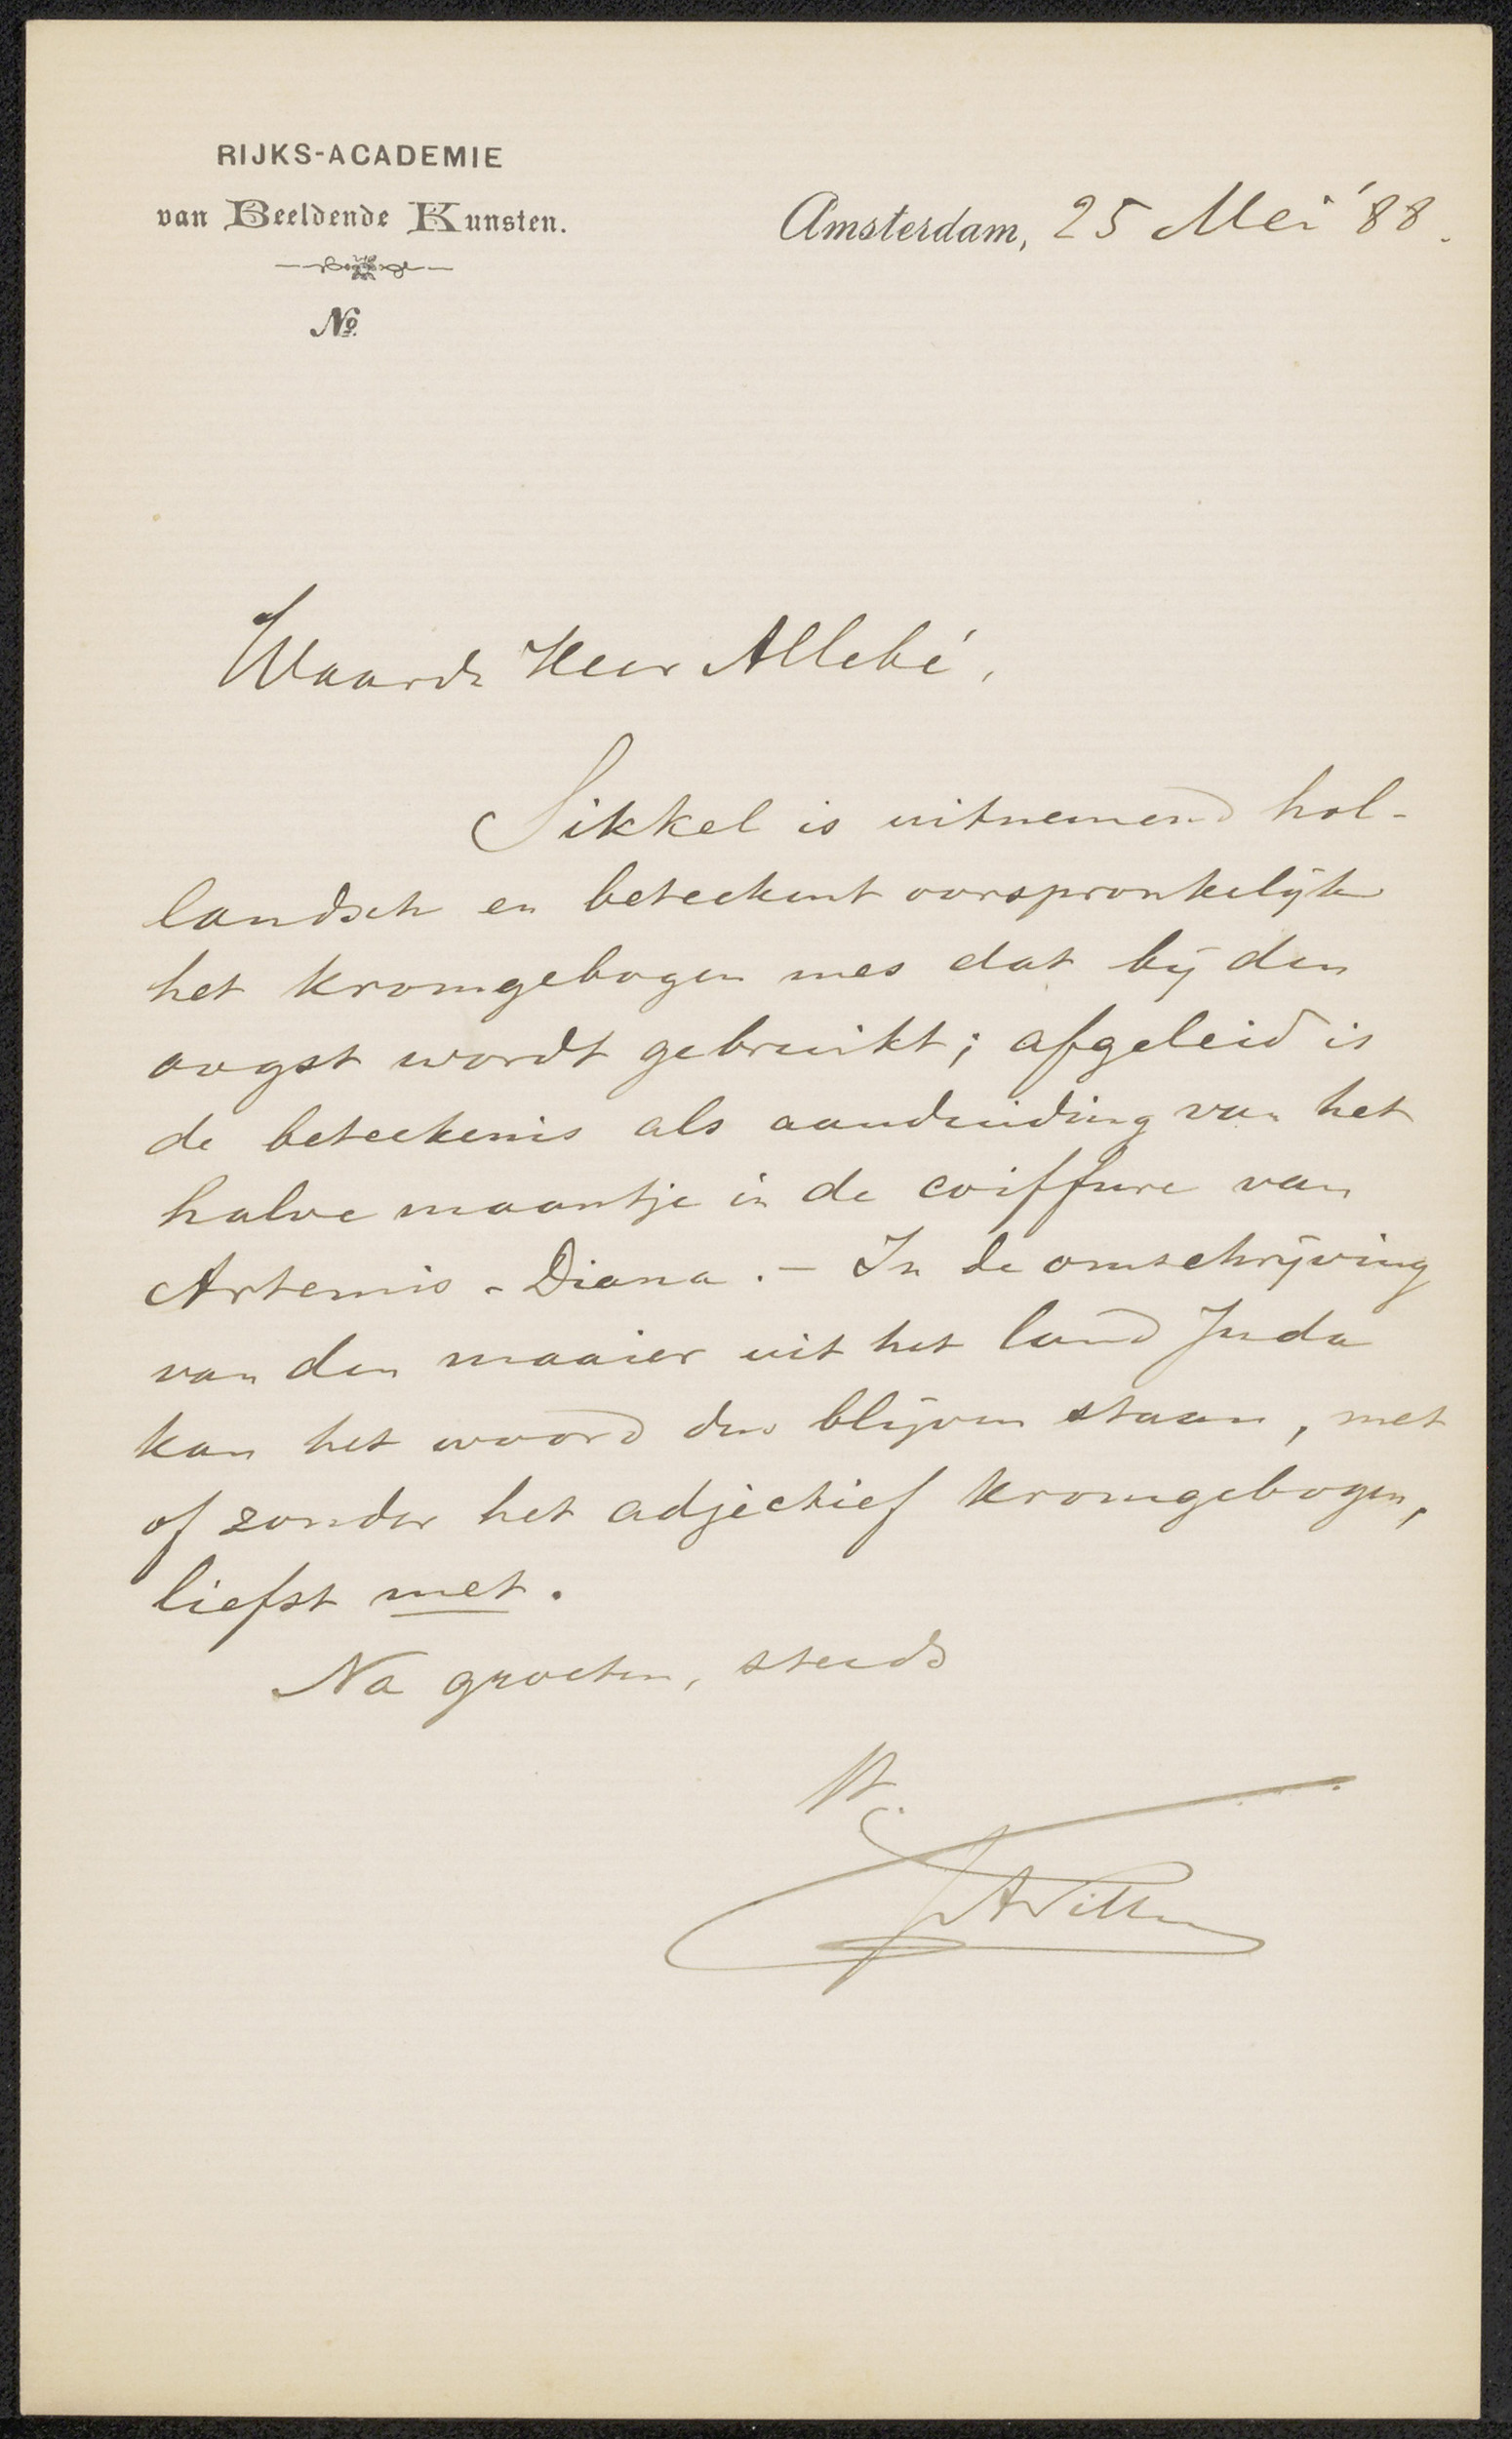 RIJKS-ACADEMIE
van Beeldende Kunsten.
Nº
Amsterdam, 25 Mei '88.
Waarde Heer Allebé,
Sikkel is uitnemend hol-
landsch en beteekent oorspronkelijk
het kromgebogen mes dat bij den
oogst wordt gebruikt; afgeleid is
de beteekenis als aanduiding van het
halve maantje in de coiffure van
Artemis-Diana. - In de omschrijving
van den maaier uit het land Juda
kan het woord dus blijven staan, met
of zonder het adjectief kromgebogen,
liefst met.
Na groeten, steeds